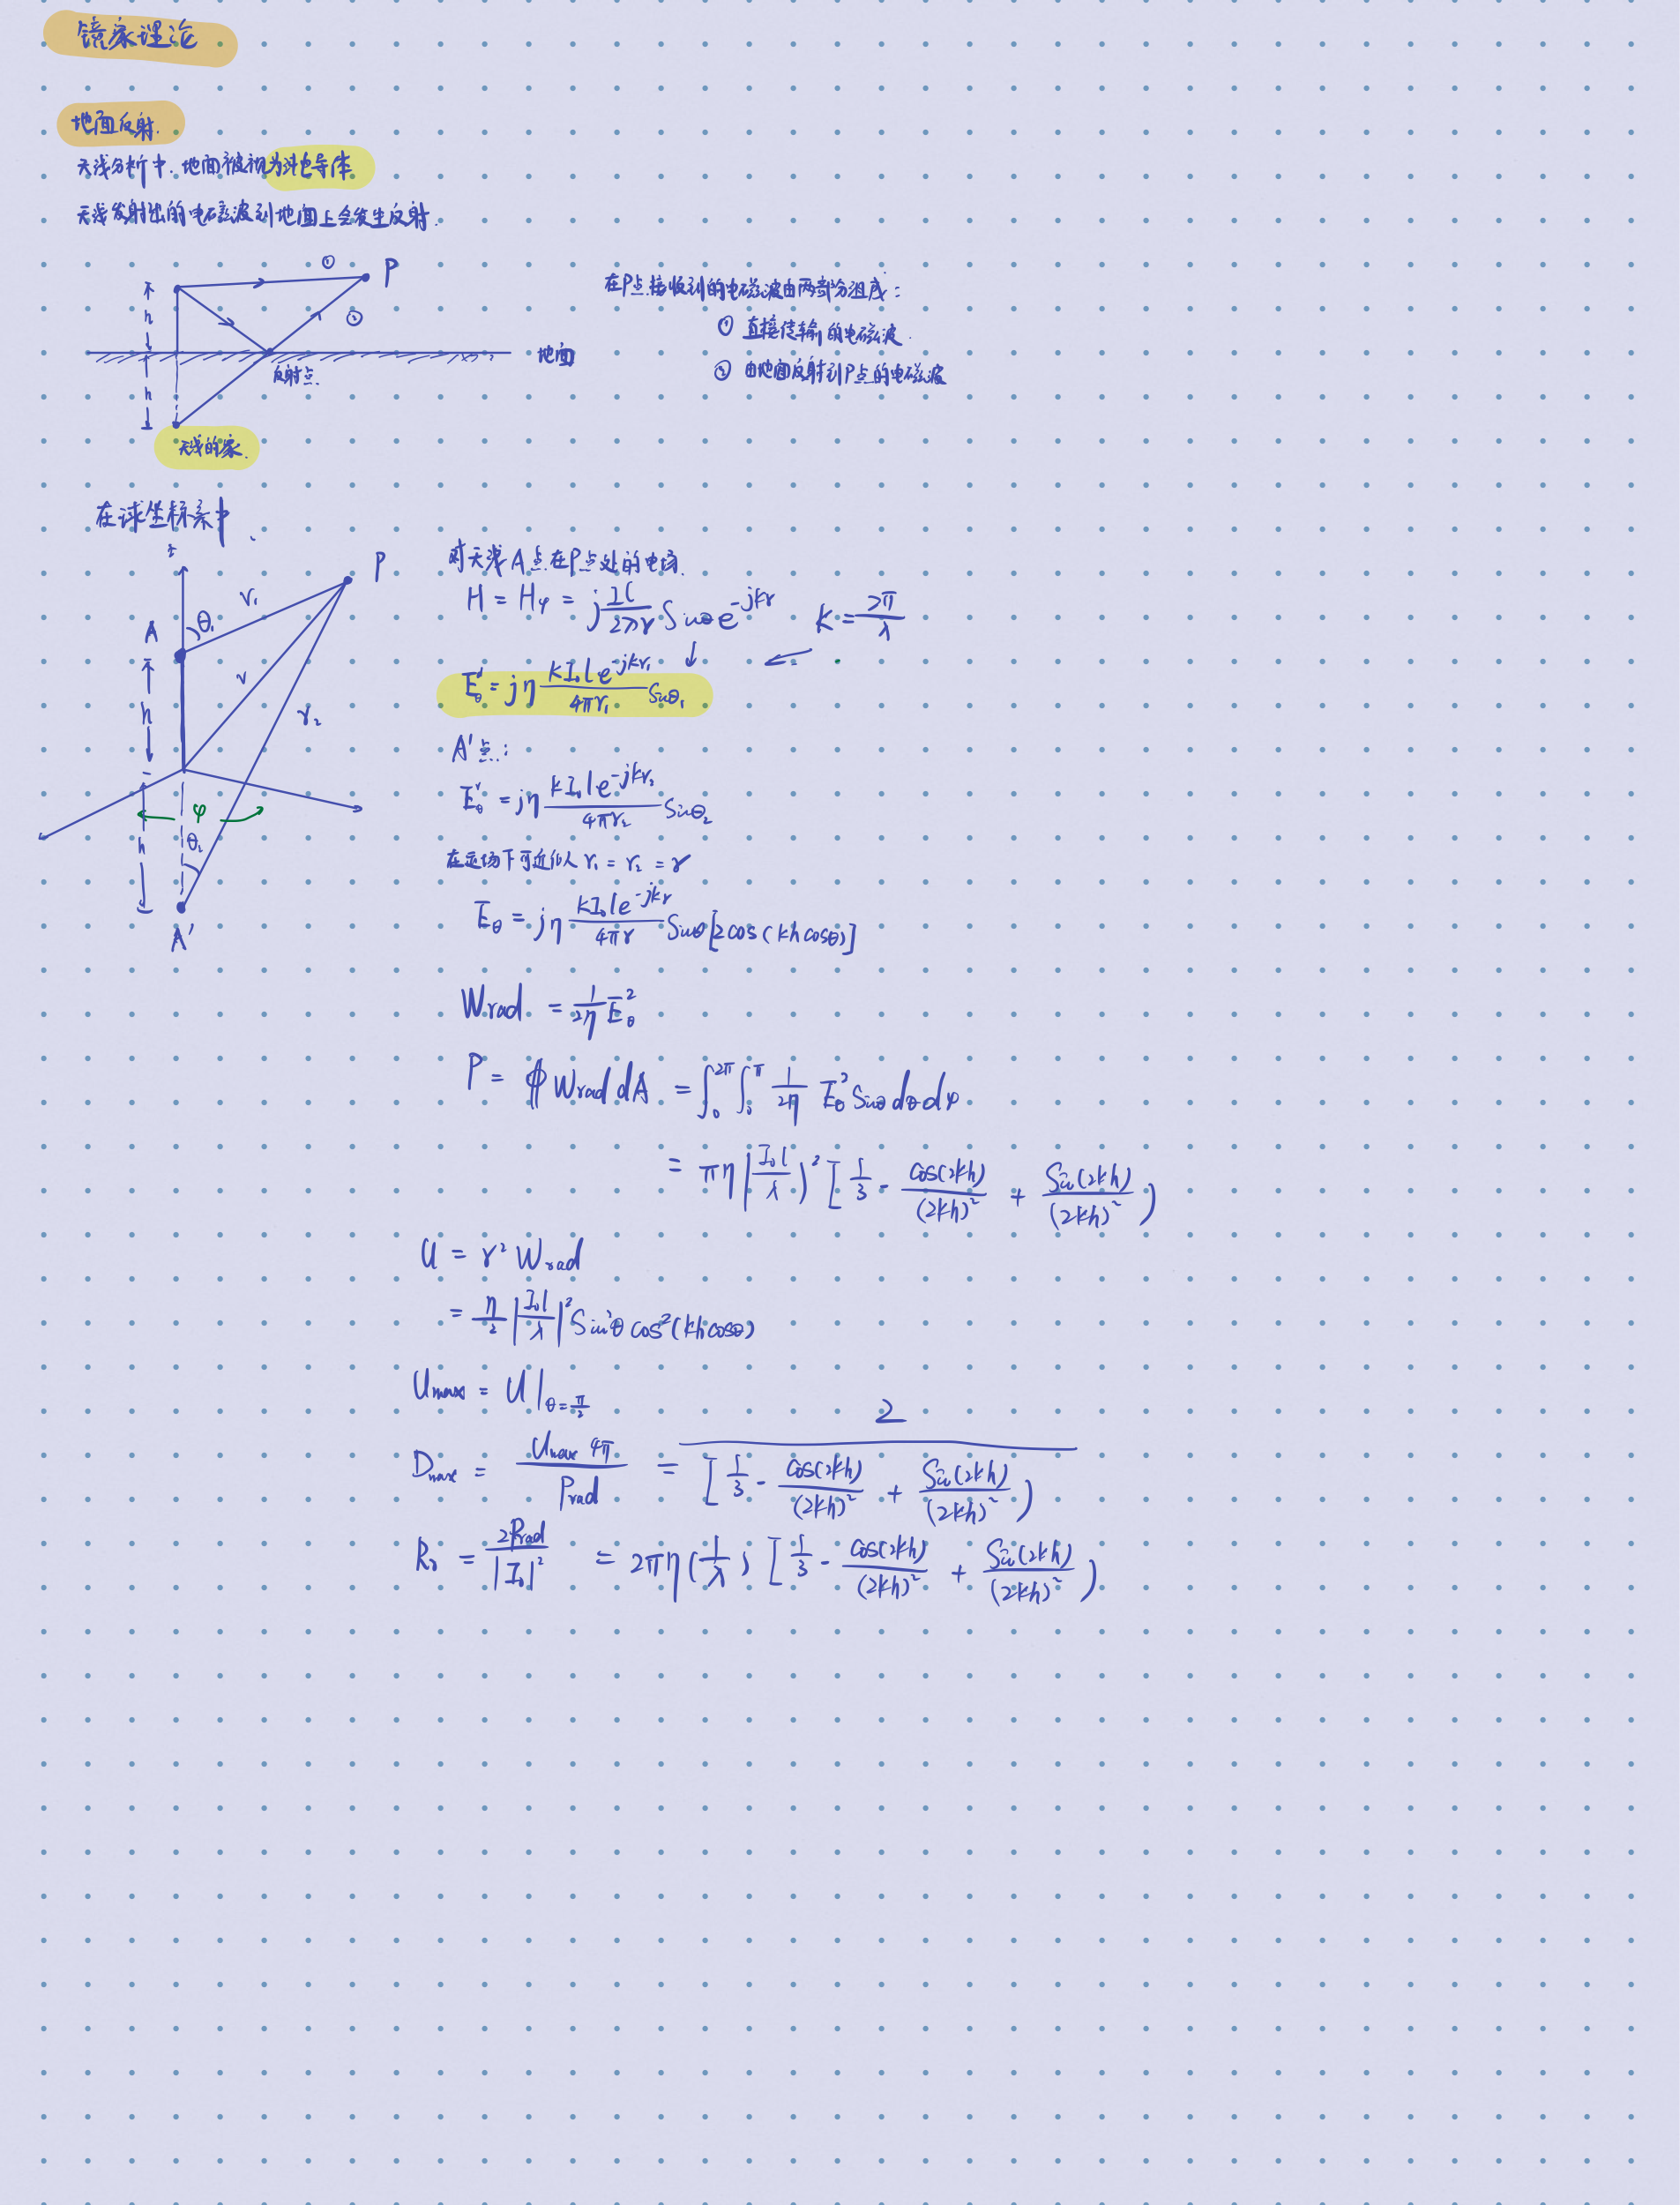 镜象理论
地面反射.
天线分析中.地面被视为半导体
天线发射出的电磁波到地面上会发生反射.
① P
h ②
地面
反射点.
h
天线的象.
在P点接收到的电磁波由两部分组成:
① 直接传输的电磁波.
② 由地面反射到P点的电磁波
在球坐标系中.
z P
r₁
A θ₁
r
h r₂
φ
h θ₂
A'
对天线A点在P点处的电场.
H = Hφ = j Il/2λr Sinθ e^-jkr K = 2π/λ
Eθ^d = jη kI₀l e^-jkr₁/4πr₁ Sinθ₁
A'点:
Eθ^r = jη kI₀l e^-jkr₂/4πr₂ Sinθ₂
在远场下可近似认 r₁ = r₂ = r
Eθ = jη kI₀l e^-jkr/4πr Sinθ[2cos(khcosθ)]
Wrad = 1/2η Eθ²
P = ∯ Wrad dA = ∫₀^2π ∫₀^π 1/2η Eθ² Sinθ dθ dφ
= πη|I₀l/λ)² [1/3 - cos(2kh)/(2kh)² + Sin(2kh)/(2kh)²)
U = r² Wrad
= η/2 |I₀l/λ|² Sin²θ cos²(khcosθ)
Umax = U|θ=π/2
Dmax = Umax 4π/Prad = 2/[1/3 - cos(2kh)/(2kh)² + Sin(2kh)/(2kh)²)
Rr = 2Prad/|I₀|² = 2πη(l/λ) [1/3 - cos(2kh)/(2kh)² + Sin(2kh)/(2kh)²)